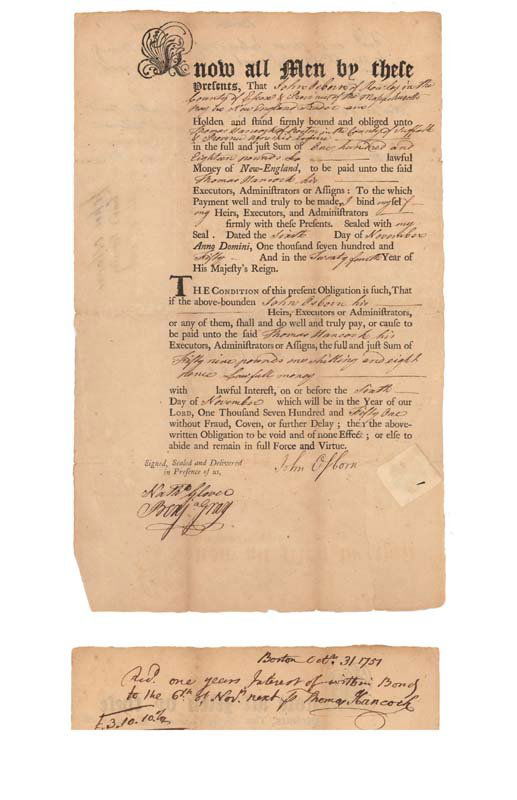 Know all Men by these
Presents, That John Osborn of Rowley in the
County of Essex & Province of the Massachusetts
Bay in New England
Holden and stand firmly bound and obliged unto
Thomas Hancock of Boston in the County of Suffolk
& Province
in the full and just Sum of One hundred and
Eighteen pounds lawful
Money of New-England, to be paid unto the said
Thomas Hancock his
Executors, Administrators or Assigns: To the which
Payment well and truly to be made, I bind myself
my Heirs, Executors, and Administrators
firmly with these Presents. Sealed with my
Seal. Dated the Sixth Day of November
Anno Domini, One thousand seven hundred and
Fifty And in the Twenty fourth Year of
His Majesty's Reign.
THE CONDITION of this present Obligation is such, That
if the above-bounden John Osborn his
Heirs, Executors or Administrators,
or any of them, shall and do well and truly pay, or cause to
be paid unto the said Thomas Hancock his
Executors, Administrators or Assigns, the full and just Sum of
Fifty nine pounds one shilling and eight
pence Lawfull money
with lawful Interest, on or before the Sixth
Day of November which will be in the Year of our
LORD, One Thousand Seven Hundred and Fifty One
without Fraud, Coven, or further Delay; then the above-
written Obligation to be void and of none Effect; or else to
abide and remain in full Force and Virtue.
Signed, Sealed and Delivered
in Presence of us,
John Osborn
Nath Glover
Benja Gray
Boston Octr. 31 1751
Recd. one years Interest of within Bond
to the 6th of Novr. next Thomas Hancock
£3.10.10½